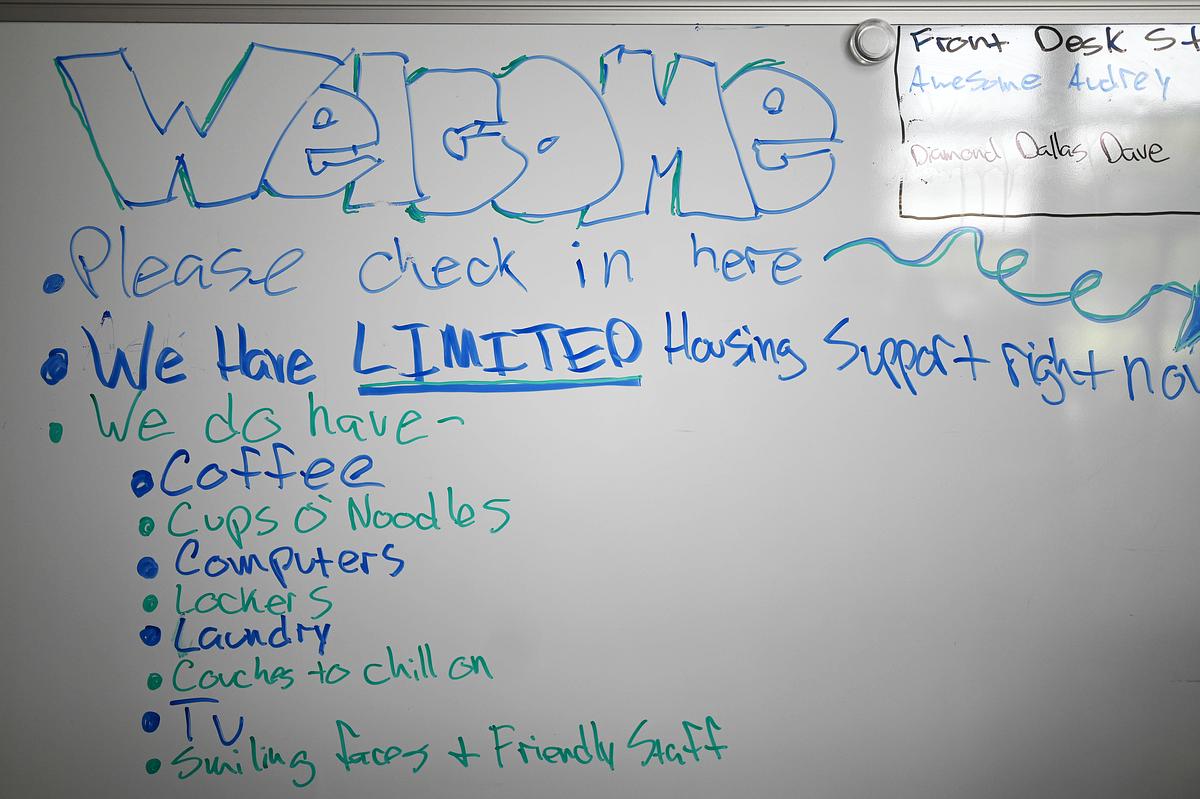 Welcome
Front Desk St
Awesome Audrey
Diamond Dallas Dave
• Please check in here
• We Have LIMITED Housing Support right now
• We do have-
• Coffee
• Cups O' Noodles
• Computers
• Lockers
• Laundry
• Couches to chill on
• TV
• Smiling faces + Friendly Staff